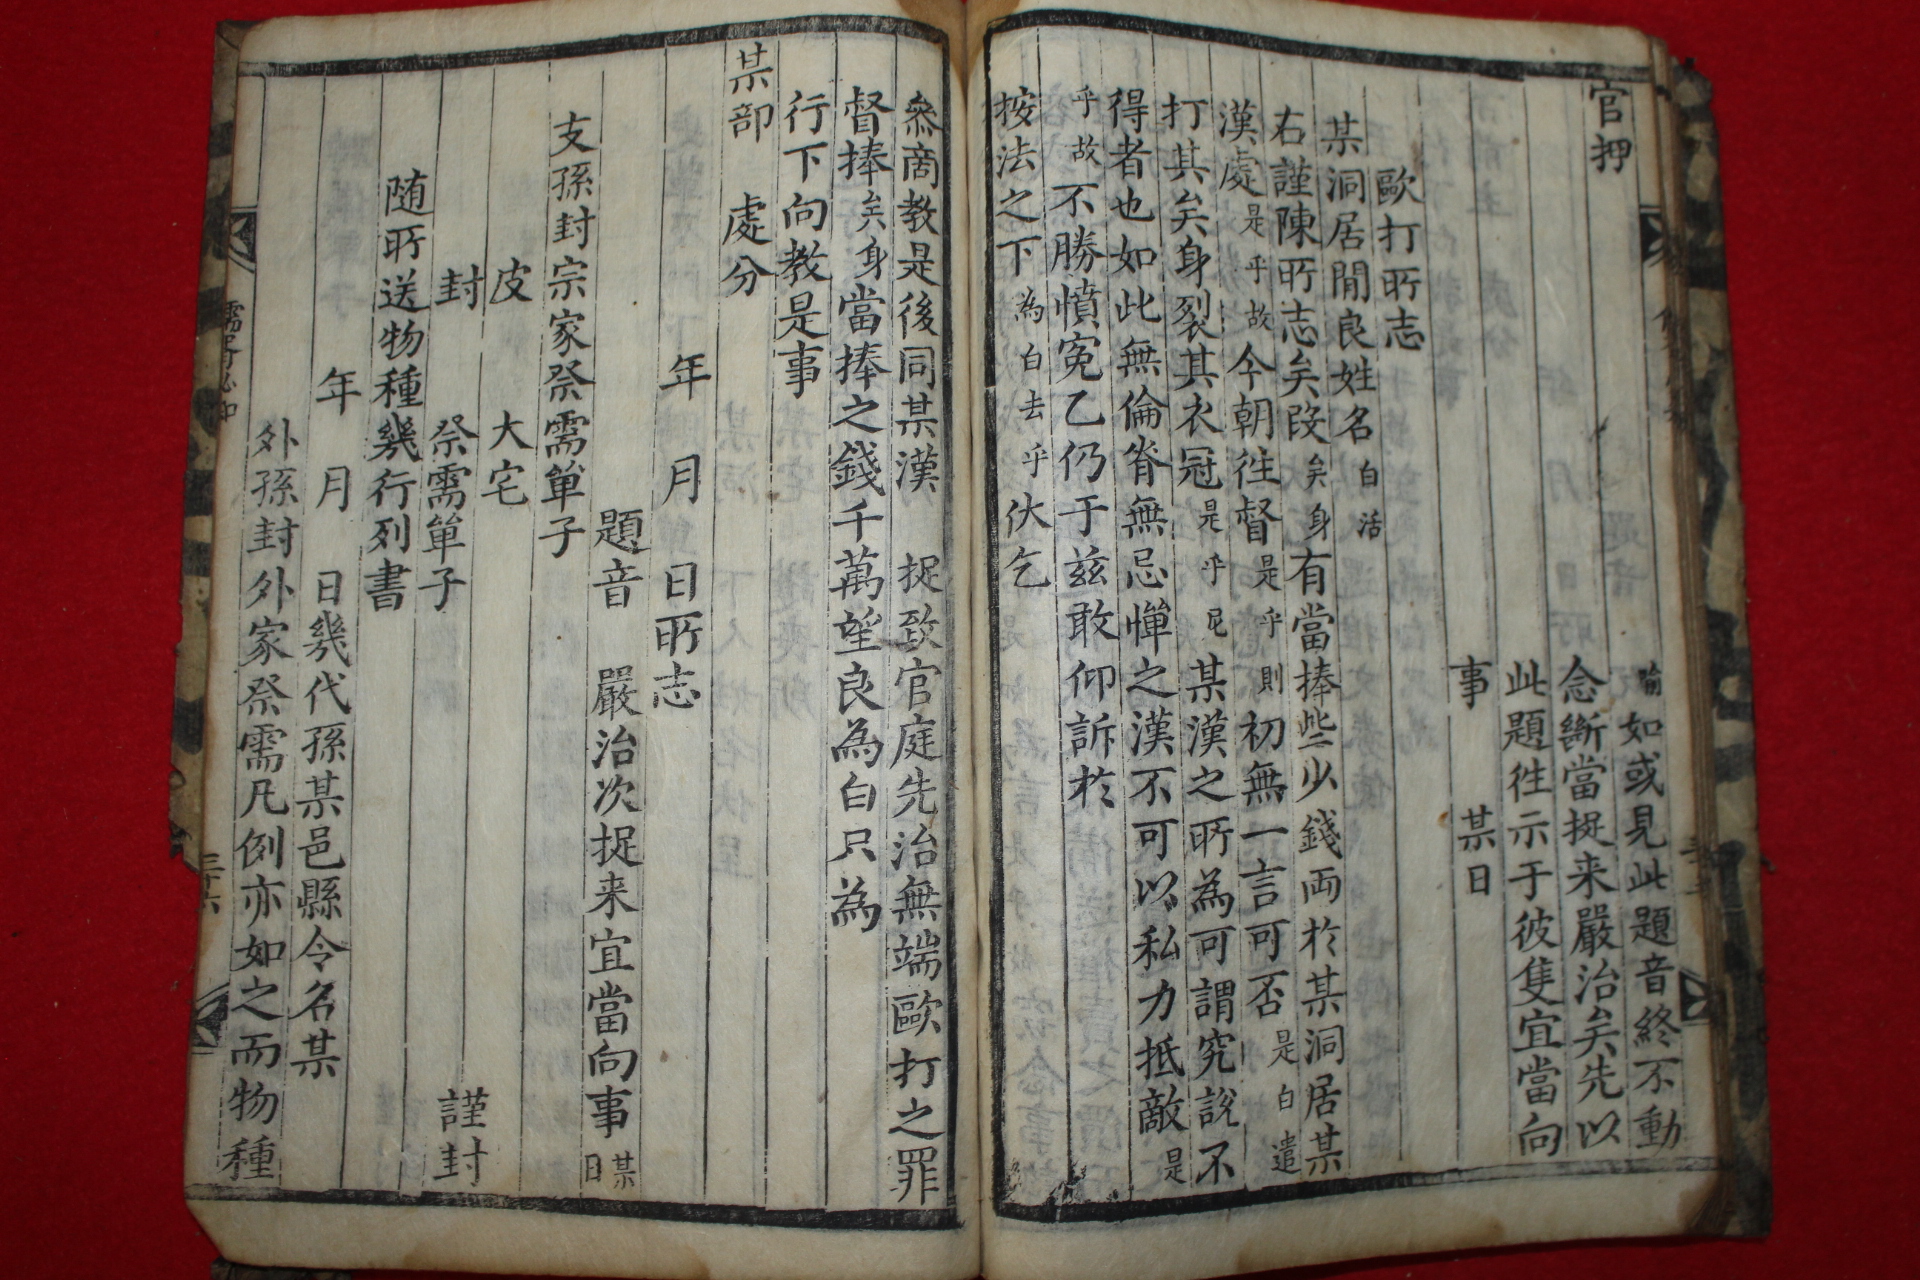 官押
喩如或見此題音終不動
念斷當捉来嚴治矣先以
此題徃示于彼隻宜當向
事　某日
歐打所志
某洞居閒良姓名白活
右謹陳所志矣段矣身有當捧些少錢両於某洞居某
漢處是乎故今朝徃督是乎則初無一言可否是白遣
打其矣身裂其衣冠是乎尼某漢之所為可謂究說不
得者也如此無倫脊無忌憚之漢不可以私力抵敵是
乎故不勝憤寃乙仍于玆敢仰訴於
按法之下為白去乎伏乞
叅商教是後同某漢　捉致官庭先治無端歐打之罪
督捧矣身當捧之錢千萬望良為白只為
行下向教是事
某部　處分
年　月　日所志
題音　嚴治次捉来宜當向事某日
支孫封宗家祭需單子
皮　大宅
封　祭需單子　謹封
随所送物種幾行列書
年　月　日幾代孫某邑縣令名某
外孫封外家祭需凡例亦如之而物種
儒胥必知
三十六